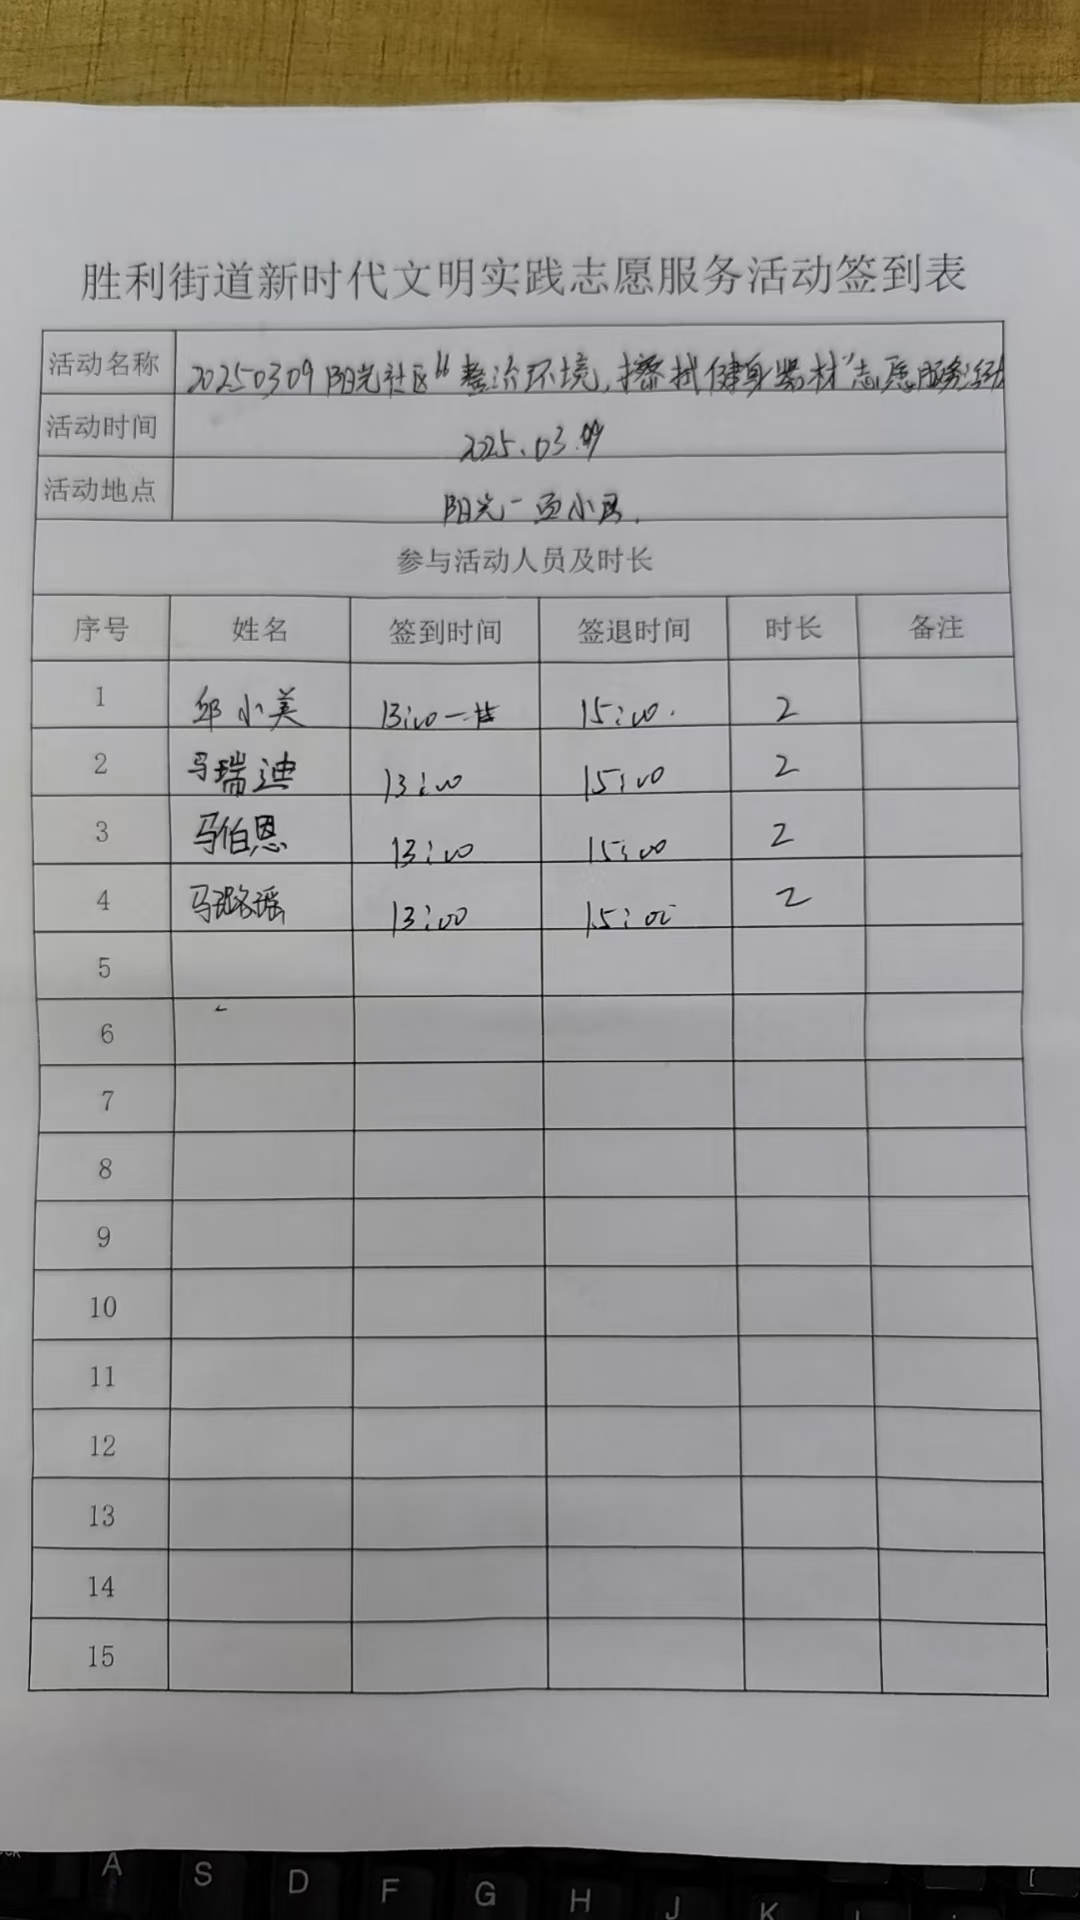 胜利街道新时代文明实践志愿服务活动签到表
活动名称 20250309阳光社区“整治环境,擦拭健身器材”志愿服务活动
活动时间 2025.03.09
活动地点 阳光一区小区.
参与活动人员及时长
序号 姓名 签到时间 签退时间 时长 备注
1 邱小美 13:00 15:00. 2
2 马瑞迪 13:00 15:00 2
3 马伯恩 13:00 15:00 2
4 马璐瑶 13:00 15:00 2
5
6
7
8
9
10
11
12
13
14
15
A S D F G H J K L [